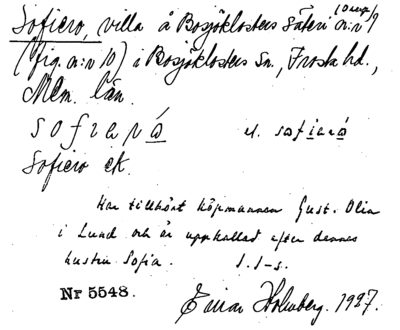 (Övers.)
Sofiero, villa å Bosjöklosters säteri a:n 1
(fig. a:n 10) i Bosjöklosters sn., Frosta hd.,
Mlm. län.
sofierò el. sofierò
Sofiero ek.
Har tillhört köpmannen Gust. Olin
i Lund och är uppkallad efter dennes
hustru Sofia. S.I-s.
Nr 5548. Einar Holmberg. 1927.